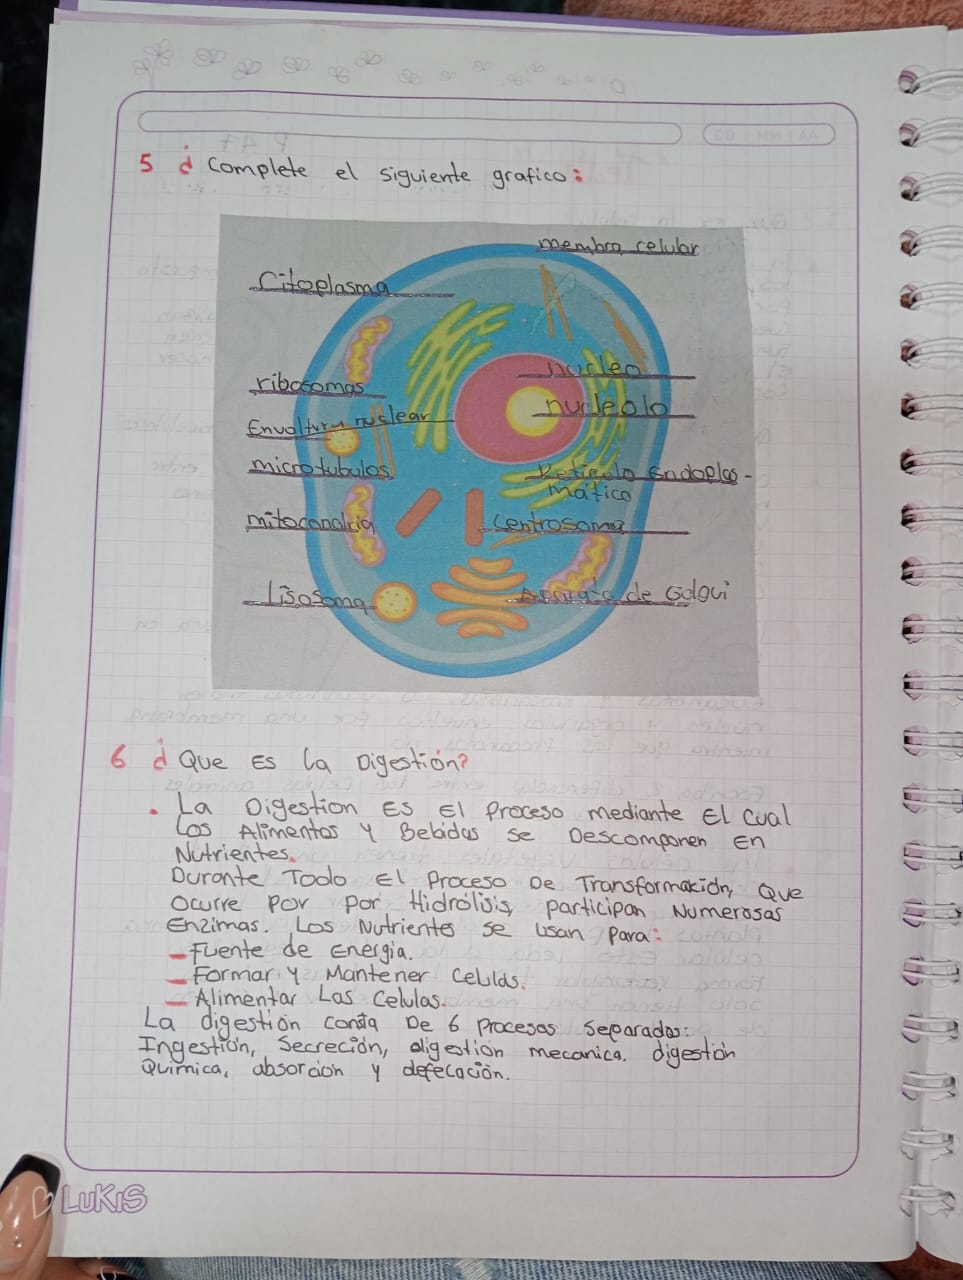 AA | MM | DD
5 ¿ Complete el siguiente grafico:
membra celular
Citoplasma
nucleo
ribosomas
nucleolo
Envoltura nuclear
microtubulos
Reticulo Endoplas-
mático
mitocondria
centrosoma
Lisosoma
Aparato de Golgui
6 ¿ Que Es La Digestión?
. La Digestion Es El Proceso mediante El cual
Los Alimentos y Bebidas se Descomponen En
Nutrientes.
Durante Todo El Proceso De Transformación, Que
Ocurre por por Hidrólisis, participan Numerosas
Enzimas. Los Nutrientes se usan para:
- Fuente de Energia.
- Formar y Mantener Celulas.
- Alimentar Las Celulas.
La digestión consta De 6 procesos separados:
Ingestión, Secreción, digestión mecanica, digestión
Quimica, absorción y defecación.
LUKIS